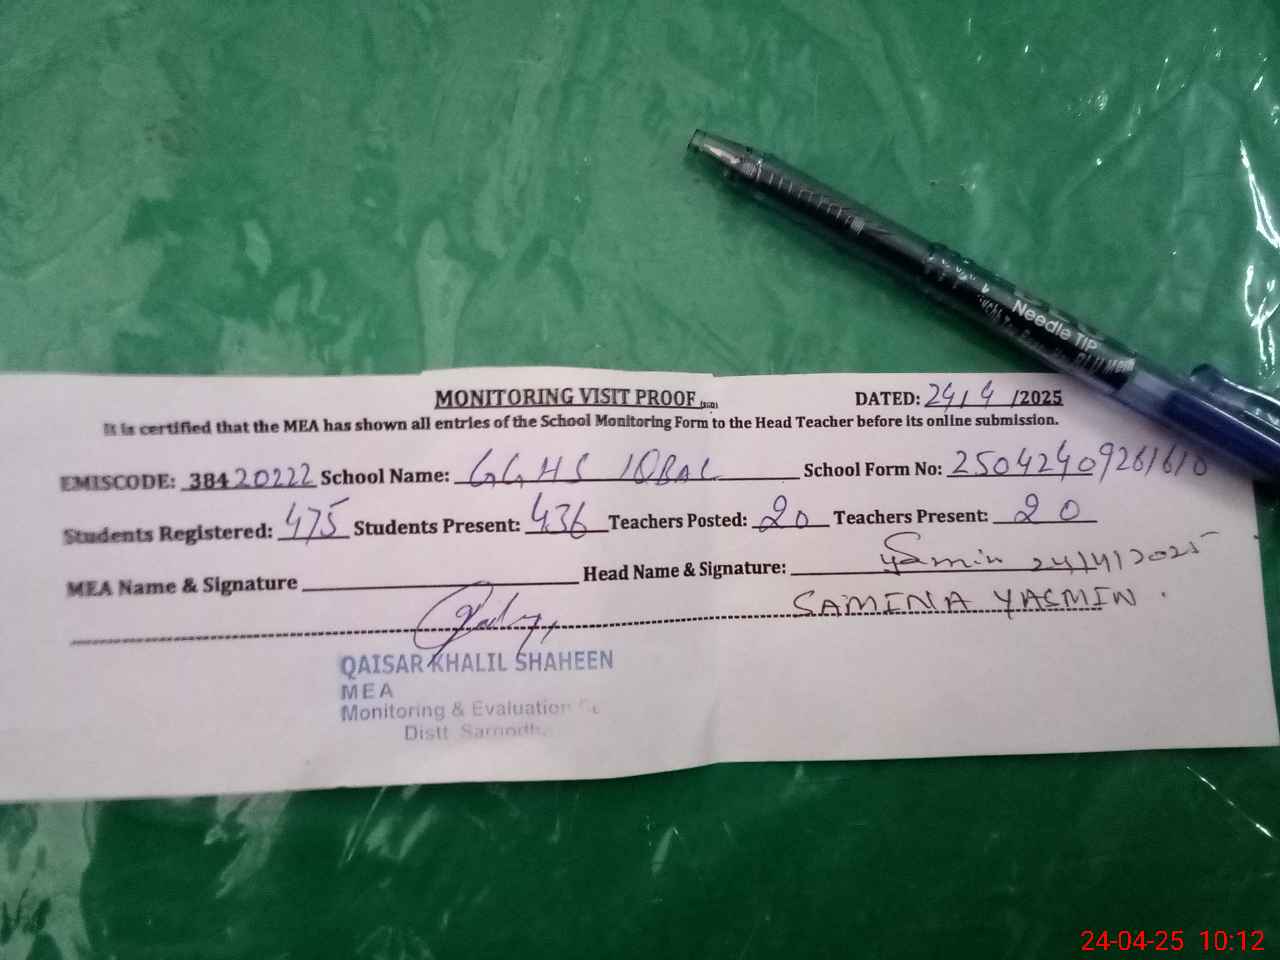 MONITORING VISIT PROOF DATED: 24/4 /2025
It is certified that the MEA has shown all entries of the School Monitoring Form to the Head Teacher before its online submission.
EMISCODE: 38420222 School Name: GGHS IQBAL School Form No:
Students Registered: 475 Students Present: 436 Teachers Posted: 20 Teachers Present: 20
MEA Name & Signature Head Name & Signature: Yasmin 24/4/2025
SAMINA YASMIN.
QAISAR KHALIL SHAHEEN
MEA
Monitoring & Evaluation
Distt
Needle TIP
24-04-25 10:12